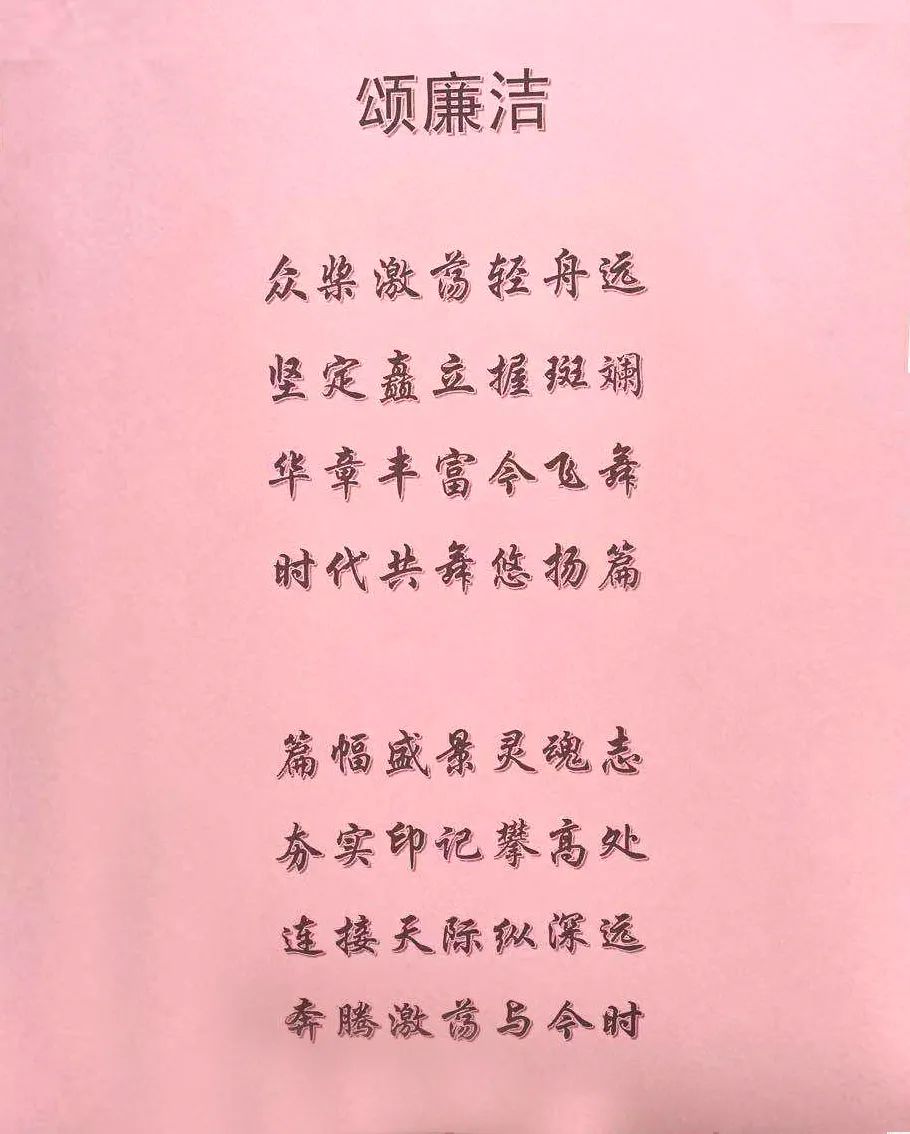 颂廉洁
众桨激荡轻舟远
坚定矗立握斑斓
华章丰富今飞舞
时代共舞悠扬篇
篇幅盛景灵魂志
夯实印记攀高处
连接天际纵深远
奔腾激荡与今时